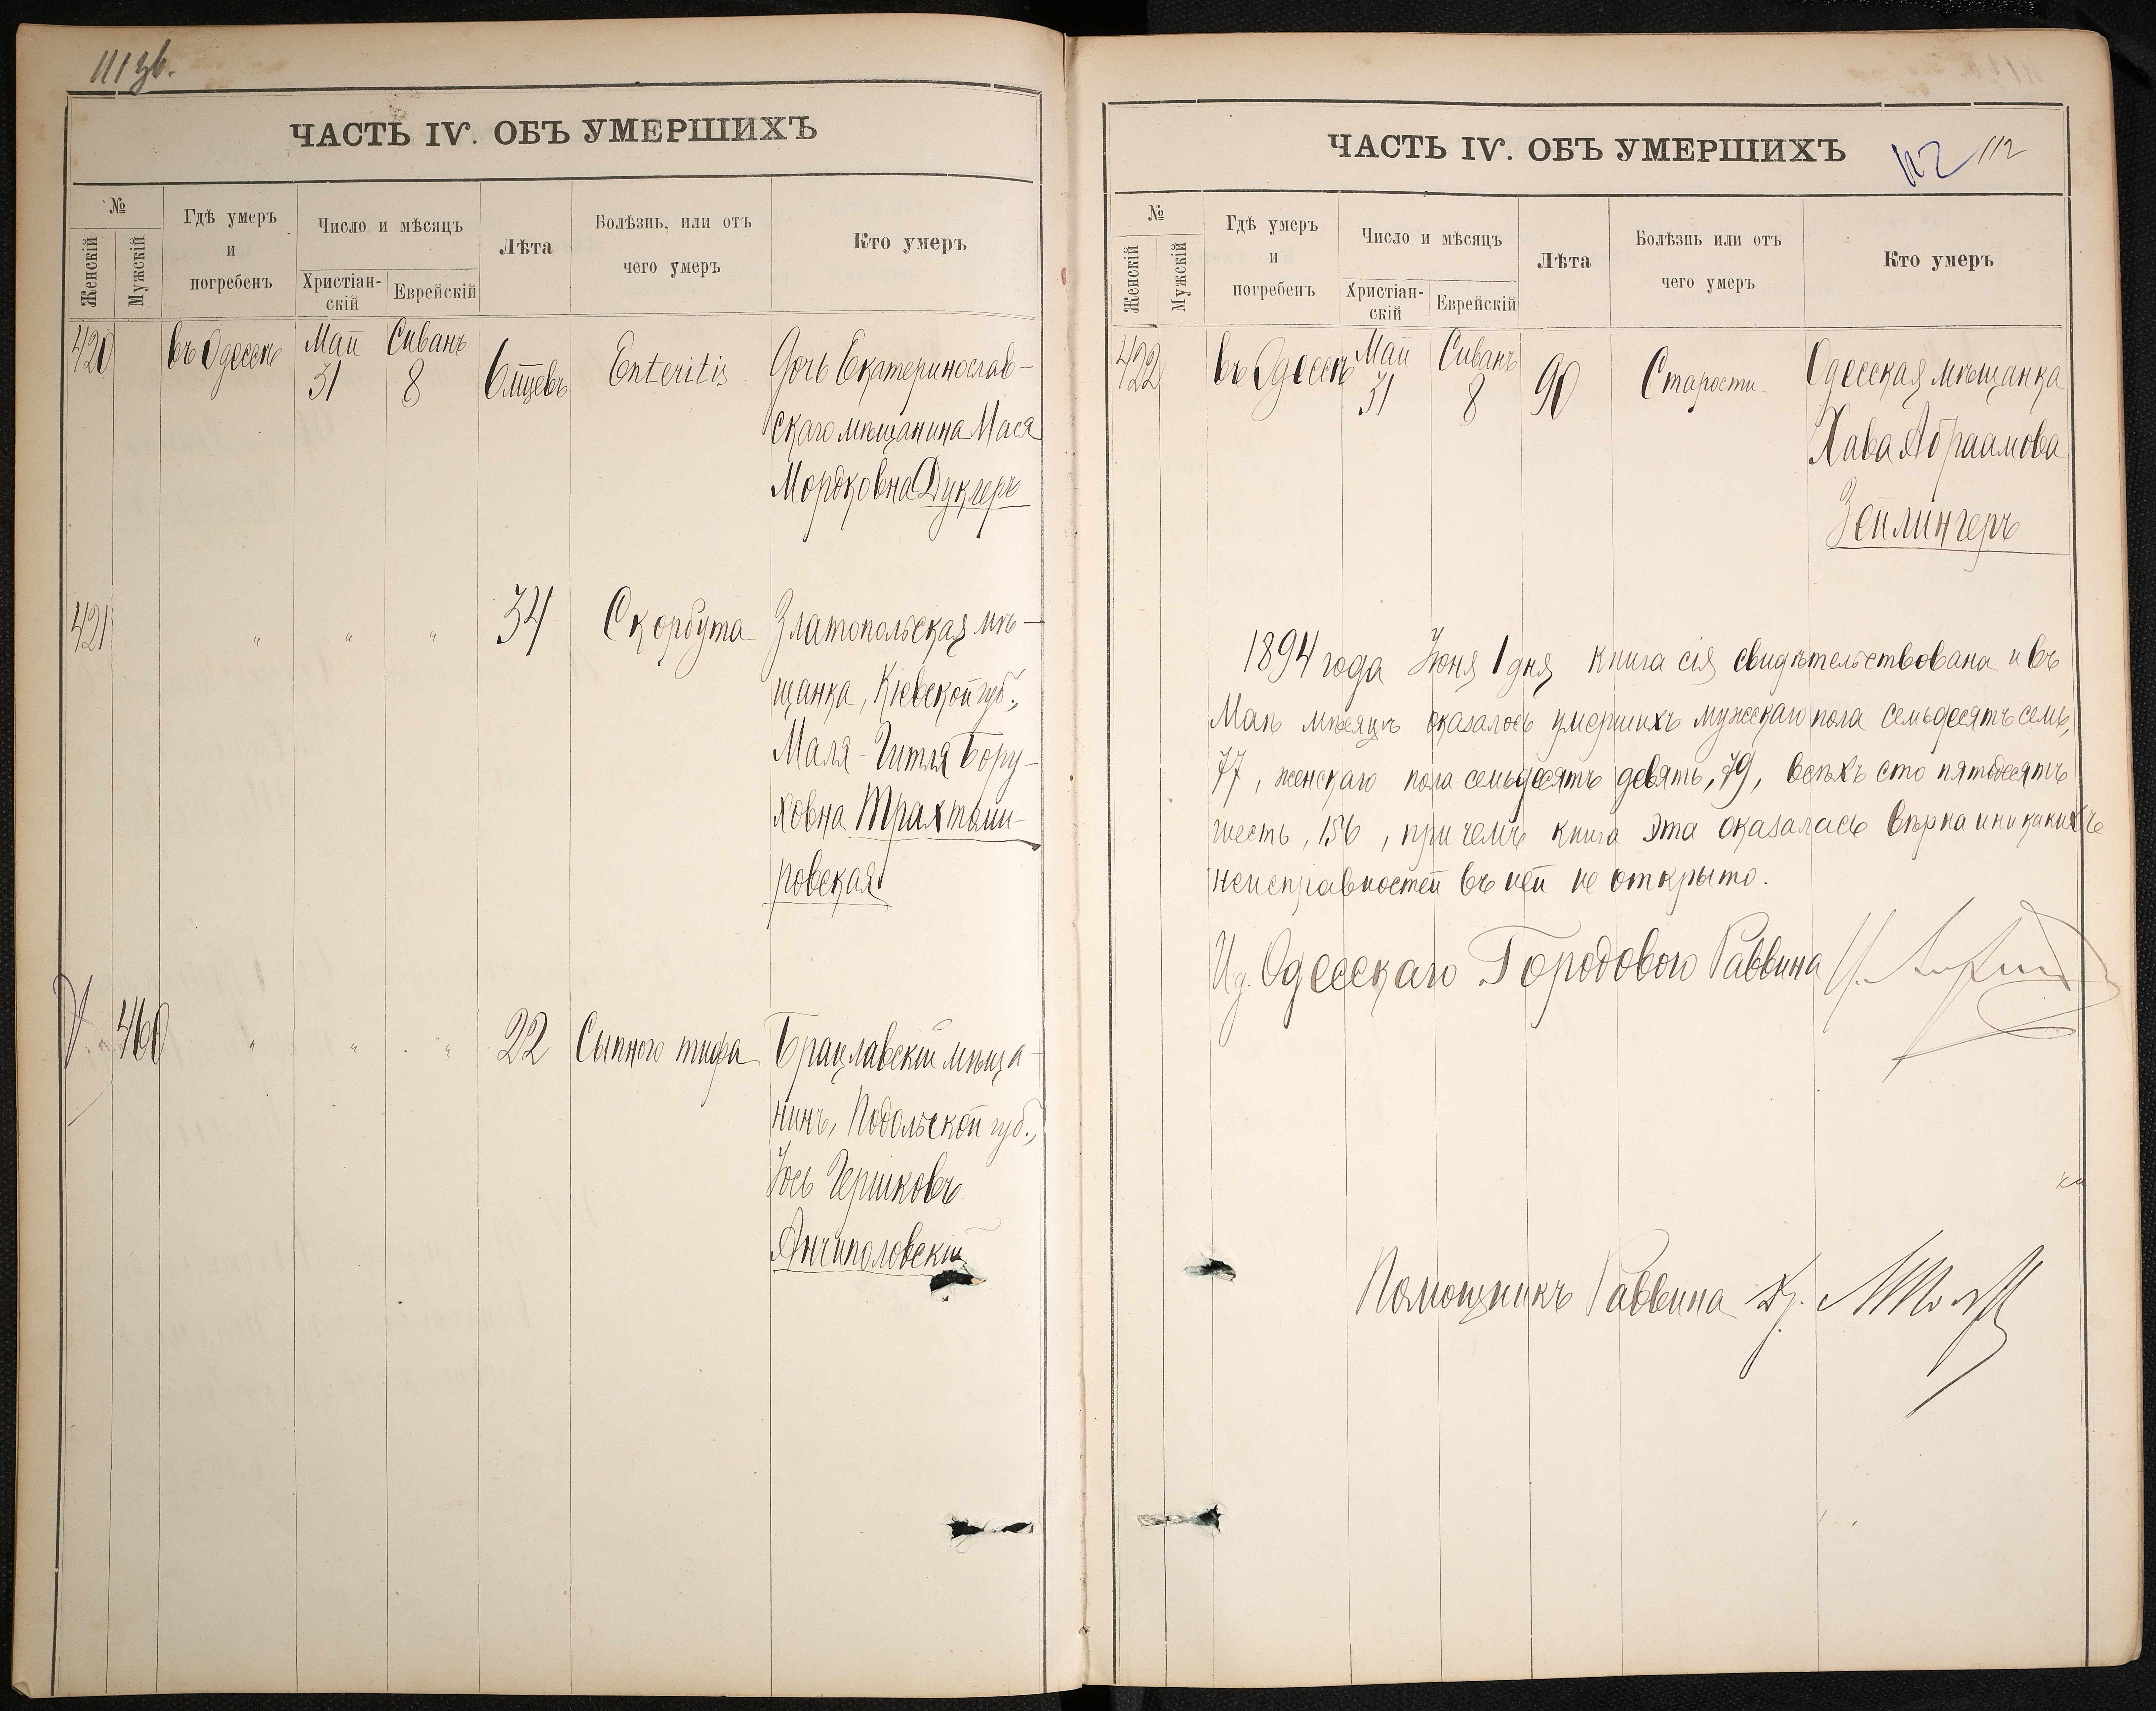 111 зб.
ЧАСТЬ IV. ОБЪ УМЕРШИХЪ
№
Женскій
Мужскій
Гдѣ умеръ
и
погребенъ
Число и мѣсяцъ
Христіан-
скій
Еврейскій
Лѣта
Болѣзнь, или отъ
чего умеръ
Кто умеръ
420
въ Одессѣ
Май
31
Сиванъ
8
6 мцевъ
Enteritis
Дочь Екатеринослав-
скаго мѣщанина Мася
Мордковна Дуклеръ
421
"
"
"
34
Скорбута
Златопольская мѣ-
щанка, Кіевской губ.,
Маля-Гитля Бору-
ховна Трахтоми-
ровская
460
"
"
"
22
Сыпного тифа
Брацлавскій мѣща-
нинъ, Подольской губ.,
Іось Гершковъ
Анчиполовскій
ЧАСТЬ IV. ОБЪ УМЕРШИХЪ
112
112
№
Женскій
Мужскій
Гдѣ умеръ
и
погребенъ
Число и мѣсяцъ
Христіан-
скій
Еврейскій
Лѣта
Болѣзнь или отъ
чего умеръ
Кто умеръ
422
въ Одессѣ
Май
31
Сиванъ
8
90
Старости
Одесская мѣщанка
Хава Абраамова
Зейлингеръ
1894 года Іюня 1 дня книга сія свидѣтельствована и въ
Маѣ мѣсяцѣ оказалось умершихъ мужескаго пола семьдесятъ семь,
77, женскаго пола семьдесятъ девять, 79, всѣхъ сто пятьдесятъ
шесть, 156, при чемъ книга эта оказалась вѣрна и никакихъ
неисправностей въ ней не открыто.
И. д. Одесскаго Городового Раввина
Помощникъ Раввина Др.